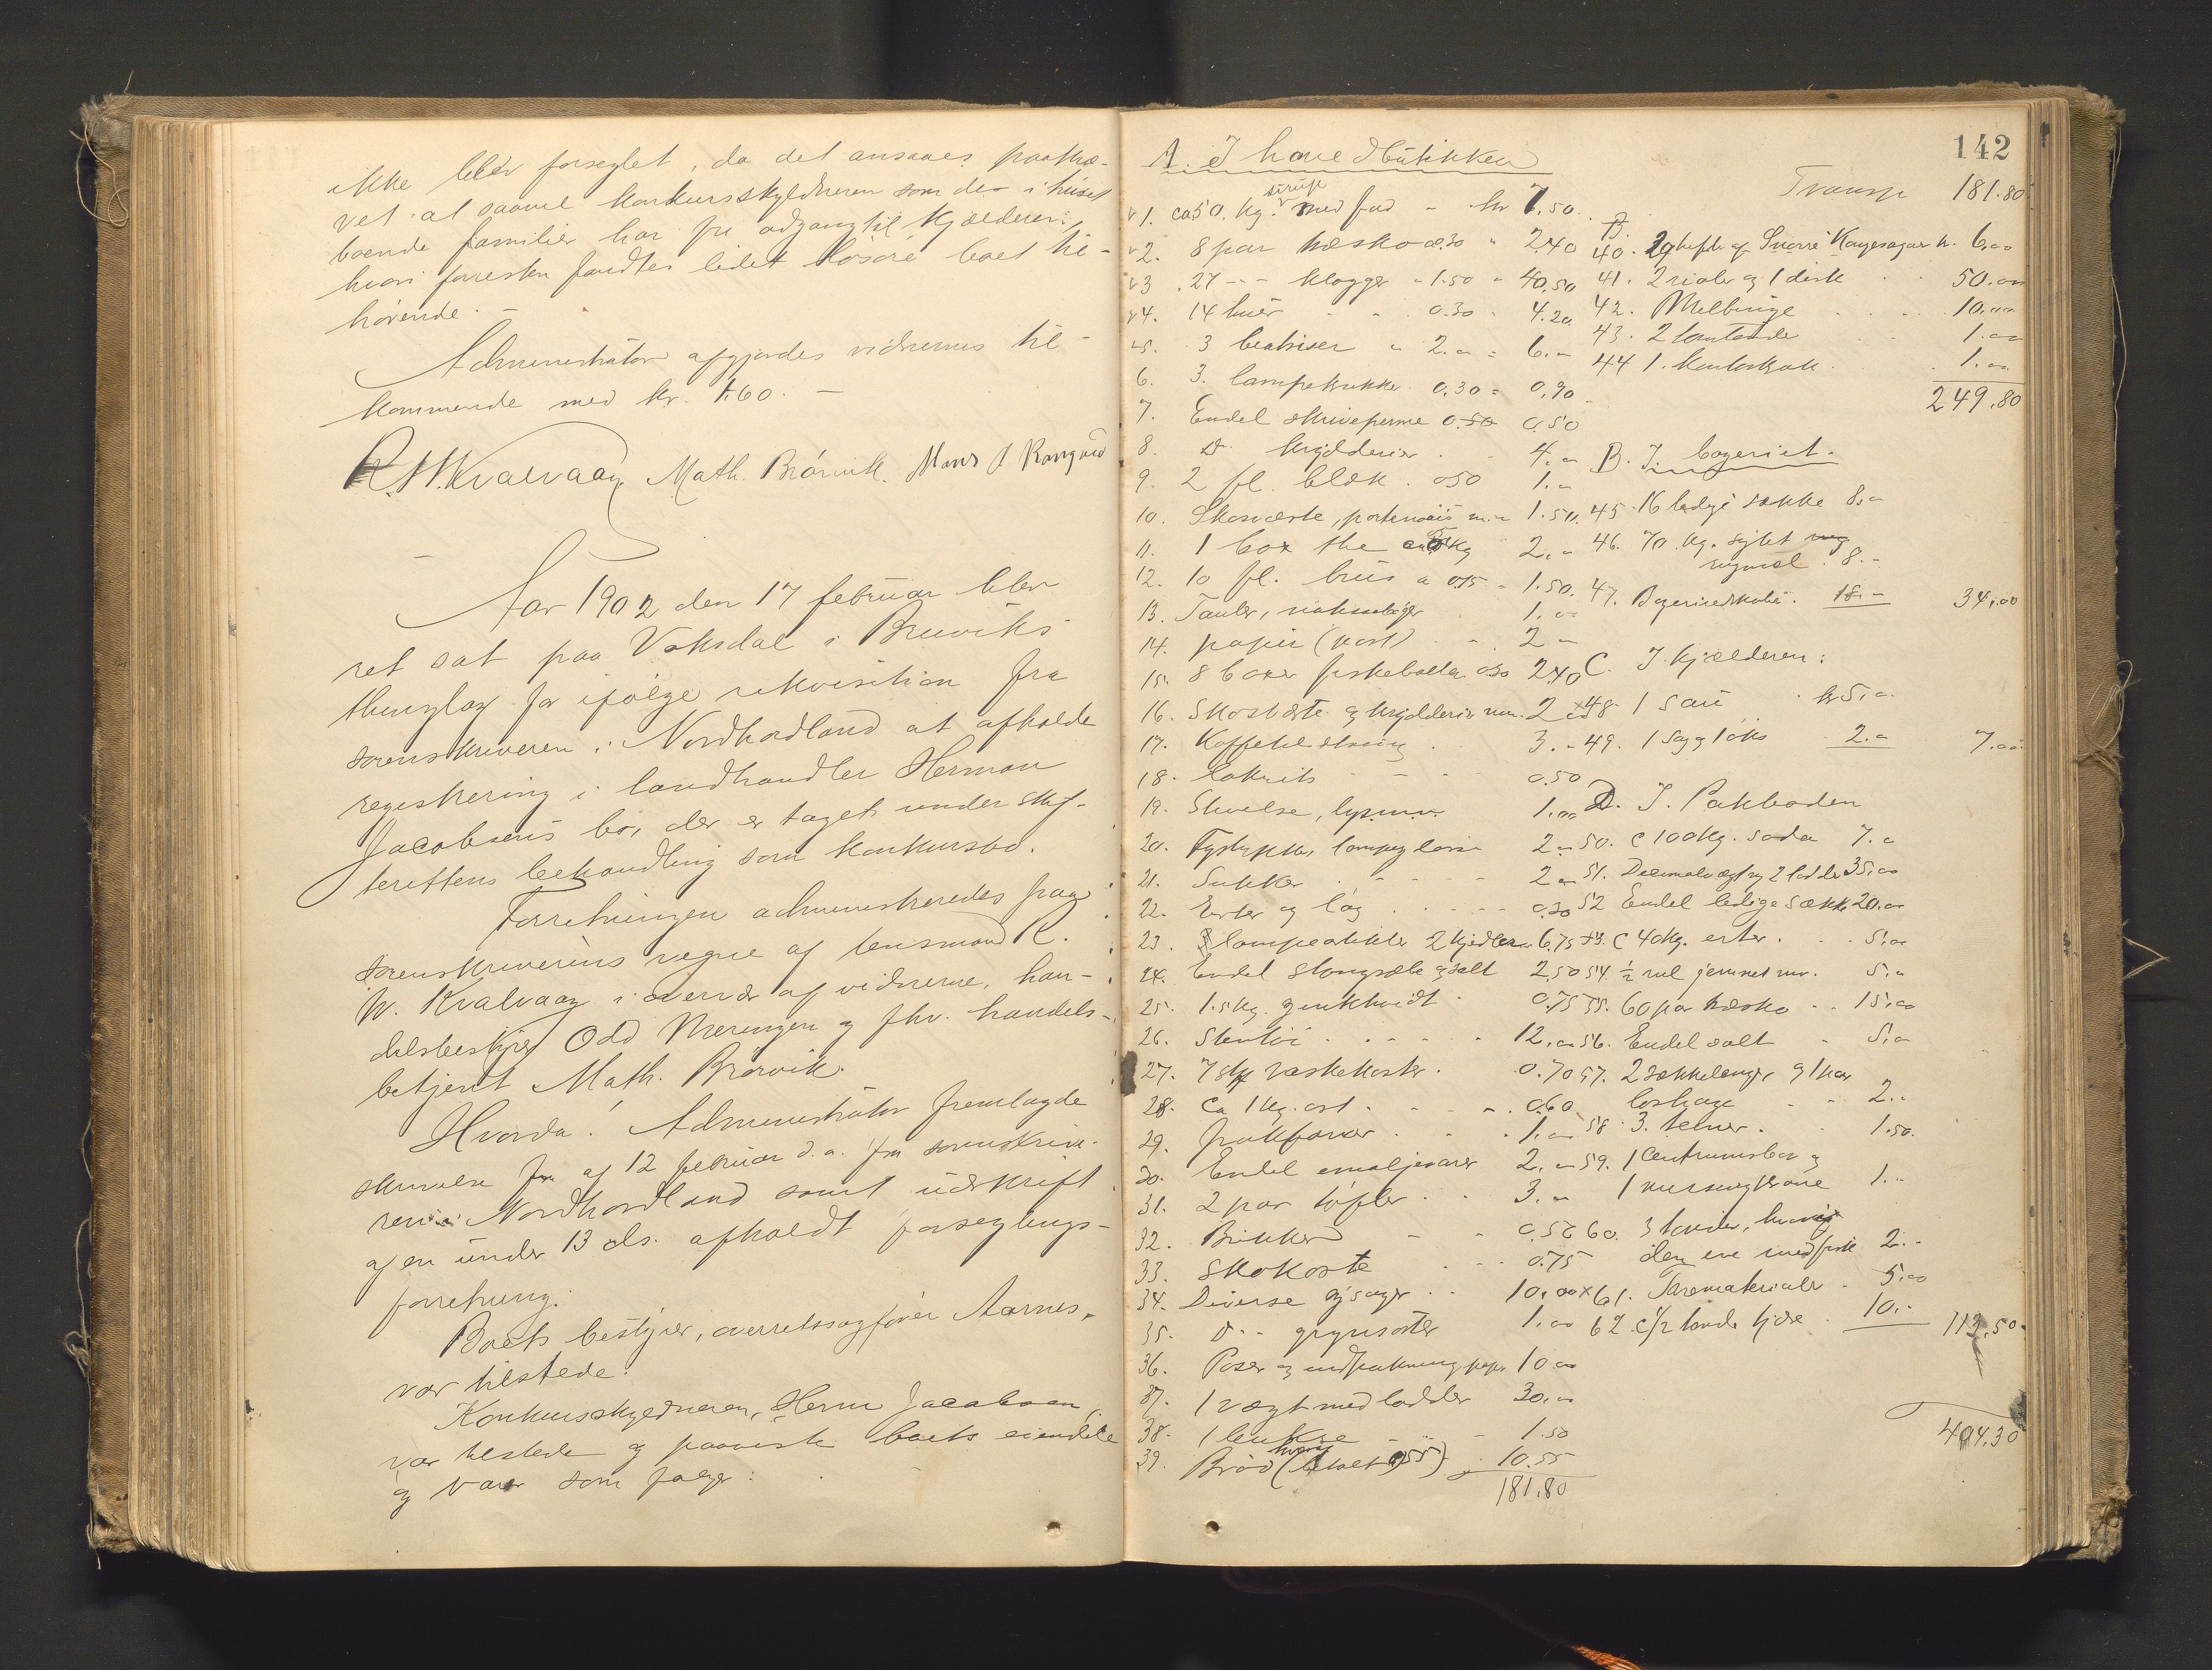 ikke blev forseglet, da det ansaaes paakræ-
vet at saavel konkursskyldneren som de i huset
boende familier har fri adgang til kjælderen,
hvori forresten fandtes lidet løsøre boet til-
hørende. -
Administrator afgjordes vidnernes til-
kommende med kr. 1.60. -
R. W. Kvalvaag Math. Brørvik. Mons J
Aar 1902 den 17 februar blev
ret sat paa Vaksdal i Bruviks
thinglag for ifølge rekvisition fra
sorenskriveren i Nordhordland at afholde
registrering i landhandler Herman
Jacobsens bo, der er taget under skif-
terettens behandling som konkursbo.
Forretningen administreredes paa
sorenskriverens vegne af lensmand R.
W. Kvalvaag i overvær af vidnerne, han-
delsbestyrer Odd Meringen og fhv. handels-
betjent Math. Brørvik.
Hvorda: Administrator fremlagde
skrivelse fra af 12 februar d.a. fra sorenskrive-
ren i Nordhordland samt udskrift
af en under 13 ds. afholdt forseglings-
forretning.
Boets bestyrer, overretssagfører Aarnes,
var tilstede.
Konkursskyldneren, Herm Jacobsen,
var tilstede og paaviste boets eiendele
og varer som følger:
142
A. I hovedbutikken
1. ca 50. kg. sirup med fad - kr 7.50
2. 8 par træsko a 30 " 2.40
3. 27 - - klogger - 1.50 " 40.50
4. 14 huer - - 0.30 - 4.20
5. 3 beatriser " 2.- = 6.-
6. 3. lampekukker 0,30 = 0,90
7. Endel skriveperme 0.50 0.50
8. Do krydderier - 4.-
9. 2 fl. blæk. 050 1.-
10. Skosværte, portemonais m.- 1.50
11. 1 box the ca kg 2.-
12. 10 fl. brus a 0.15 - 1.50
13. Tauler, 1.00
14. papir (post) - - 2 -
15. 8 boxer fiskeboller 030 2.40
16. Skosværte og krydderier mm. 2 00
17. Kaffetilsætning 3.-
18. lakrits - - - 0.50
19. Stivelse, lys m.v. 1.00
20. Fyrstykker, lampeglasse 2 -
21. Sukker - - - - 2 -
22. Erter og løg - - - 0.30
23. lampeartikler 2 kjedler 6.75
24. Endel stangsæbe og salt 2.50
25. 1.5 kg. zinkhvidt - 0.75
26. Stentøi - - - - 12.00
27. 7 stk vaskekoster. 0.70
28. Ca 1 kg. ost - - - 0.60
29. farver - - 1.00
30. Endel emaljevarer 2.-
31. 2 par tøfler - - 3.-
32. Brikker - - 0.50
33. Skokoste - - 0.75
34. Diverse sysager - - 10.00
35. D - - grynsorter 1.00
36. Poser og indpakningspapir 10 00
37. 1 vægt med lodder 30.-
38. 1 1.50
39. Brød (hvoraf 055) - 10.55
181.80
Transp 181.80
40. 29 hefter af Snorre Kongesagaer kr. 6.00
41. 2 reoler og 1 disk - - 50.00
42. Melbinge - - - 10.00
43. 2 - - 1.00
44 1. kontorkrak - 1.00
249.80
B. I bageriet.
45. 16 ledige sække 8.-
46. 70 kg. sigtet rug
rugmel. 8.-
47. Bageriredskaber. 18.- 34.00
C. I kjælderen:
48 1 sau - kr 5.-
49. 1 sag 1 øks - 2.- 7.00
D. I Pakboden
50. C 100 kg. soda 7.-
51. Decimalvægt og 2 lodder 35.00
52 Endel ledige sække 20.00
53. C 40 kg. erter. - - 5.00
54. ½ rul jernnet mv. 5.-
55. 60 par træsko - - 15.00
56. Endel salt - 5.-
57. 2 sækkelænger og 1 par
- - 2.-
58 3. telner. - 1.50.
59. 1 centrumsbor og
1 1.-
60. 3 tønder, hvoraf
den ene med fisk 2.-
61. Taremateriale - 5.00
62 C ½ tønde tjære 10.- 113.50
404.30